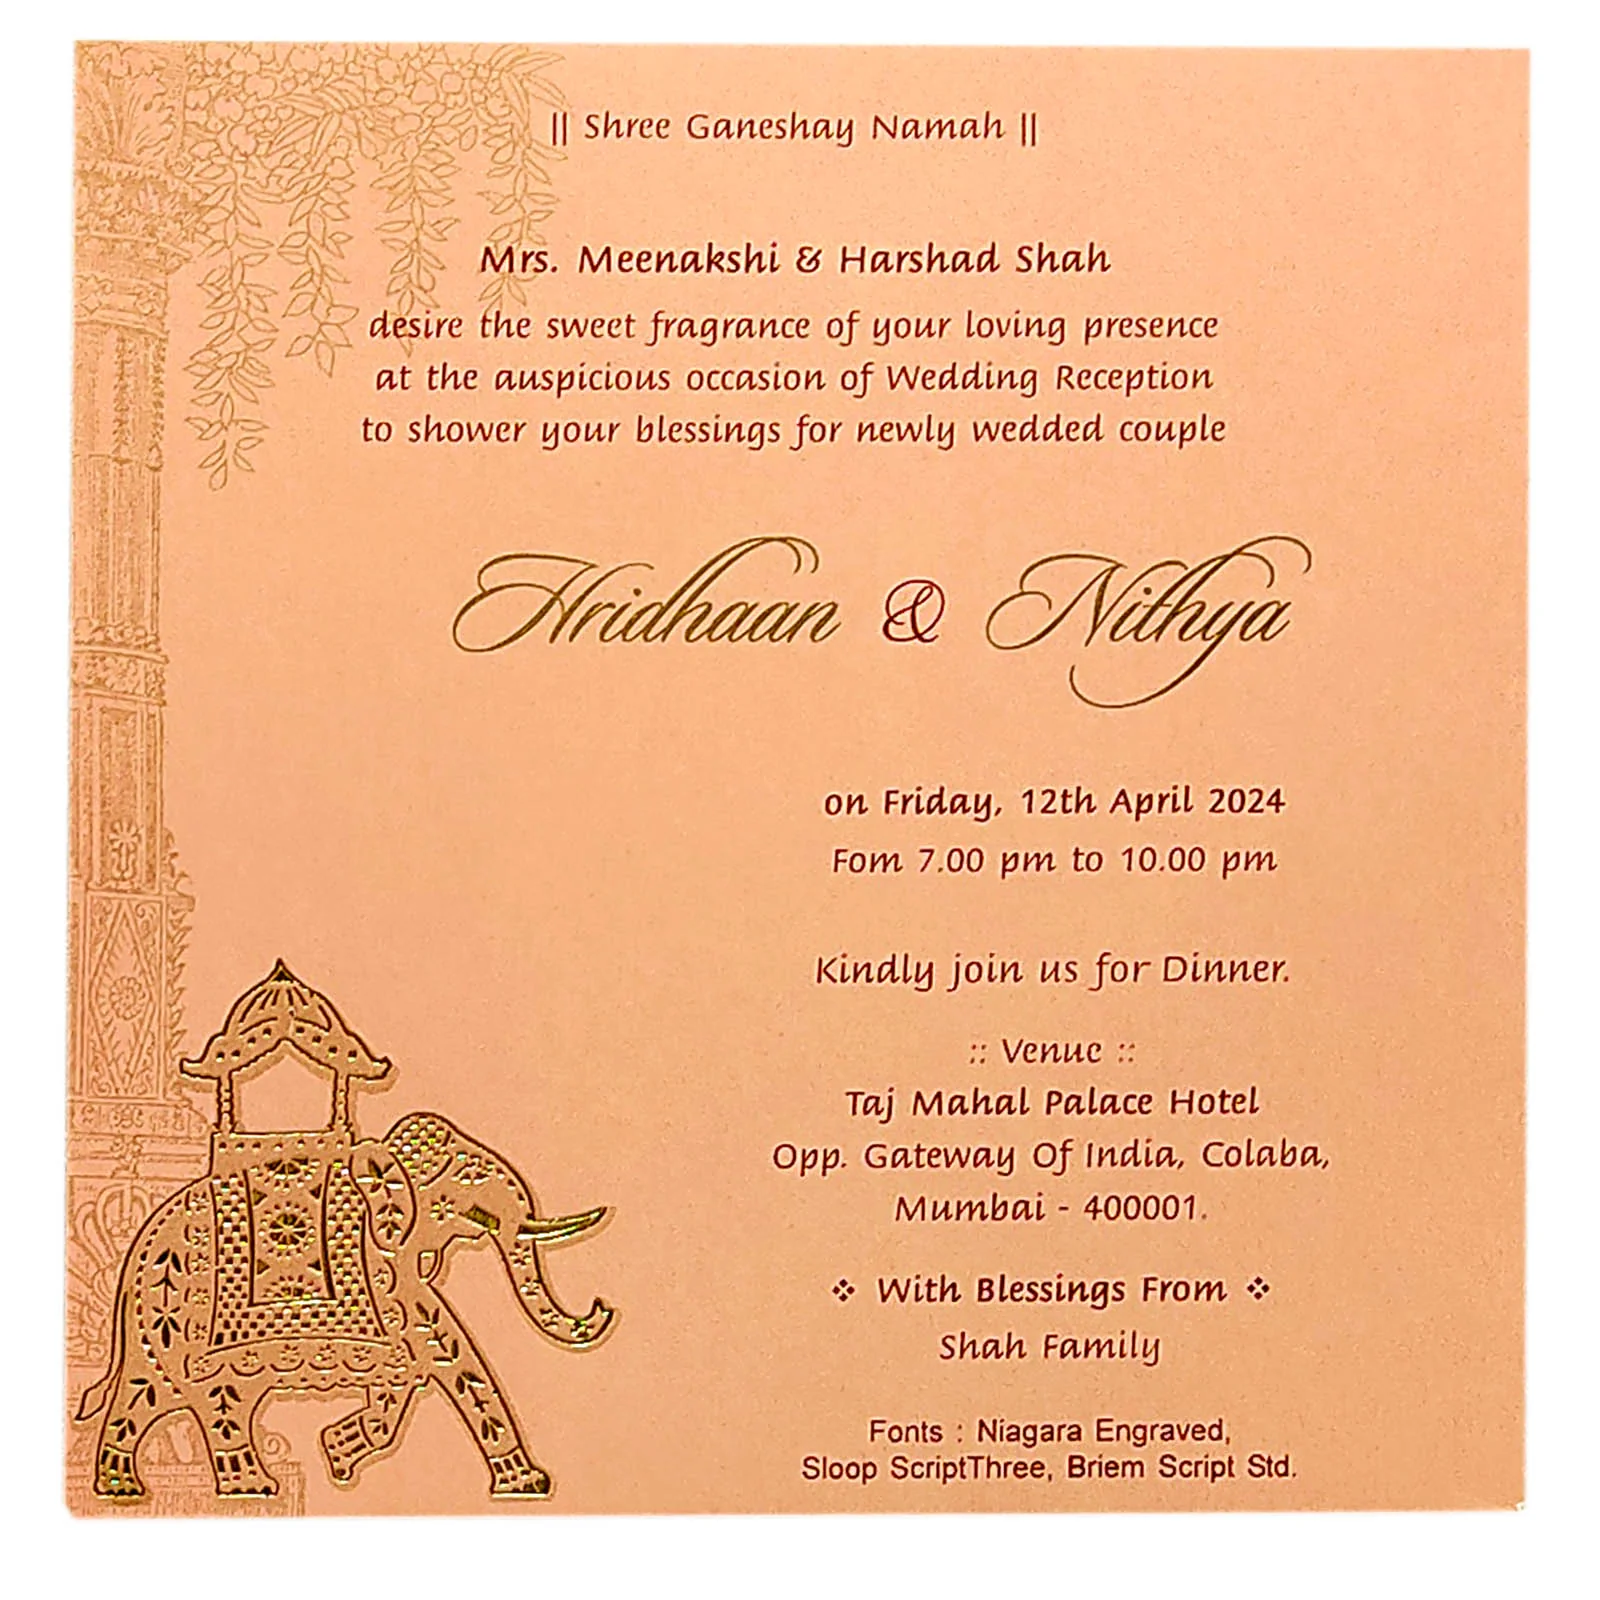 || Shree Ganeshay Namah ||
Mrs. Meenakshi & Harshad Shah
desire the sweet fragrance of your loving presence
at the auspicious occasion of Wedding Reception
to shower your blessings for newly wedded couple
Hridhaan & Nithya
on Friday, 12th April 2024
Fom 7.00 pm to 10.00 pm
Kindly join us for Dinner.
:: Venue ::
Taj Mahal Palace Hotel
Opp. Gateway Of India, Colaba,
Mumbai - 400001.
❖ With Blessings From ❖
Shah Family
Fonts : Niagara Engraved,
Sloop ScriptThree, Briem Script Std.